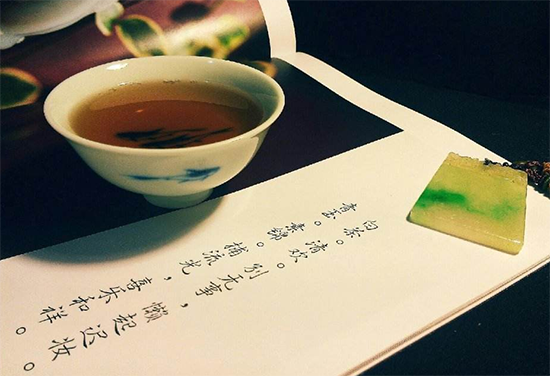 白茶。清欢。别无事，懒起迟妆。
青玉。素锦。捕流光，喜乐和祥。